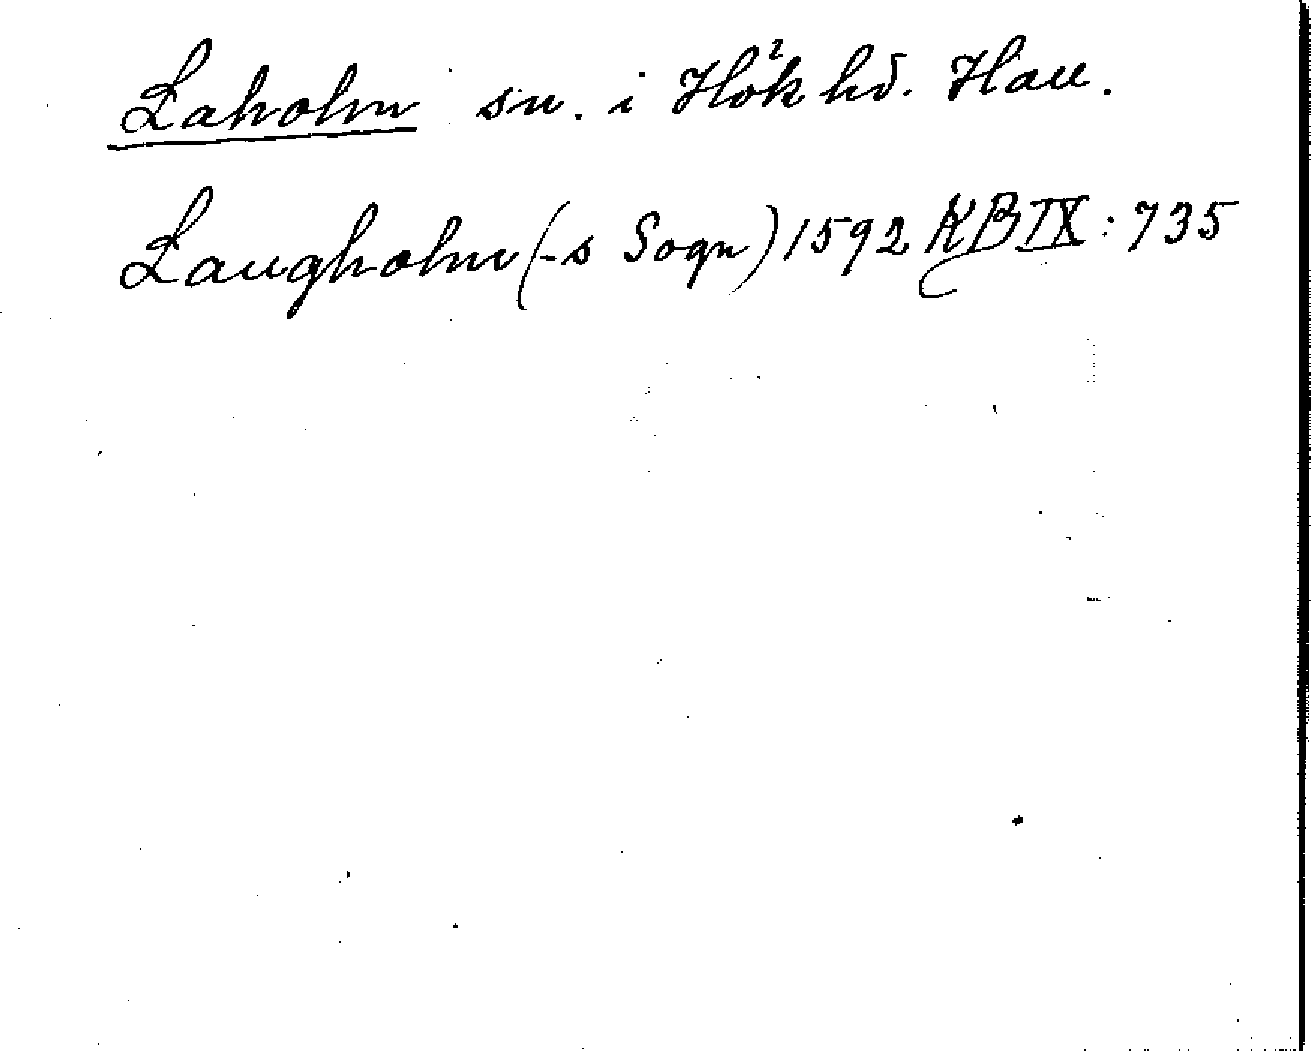 Laholm sn. i Hök hd. Hall.
Laugholm (-s Sogn) 1592 KB IX: 735